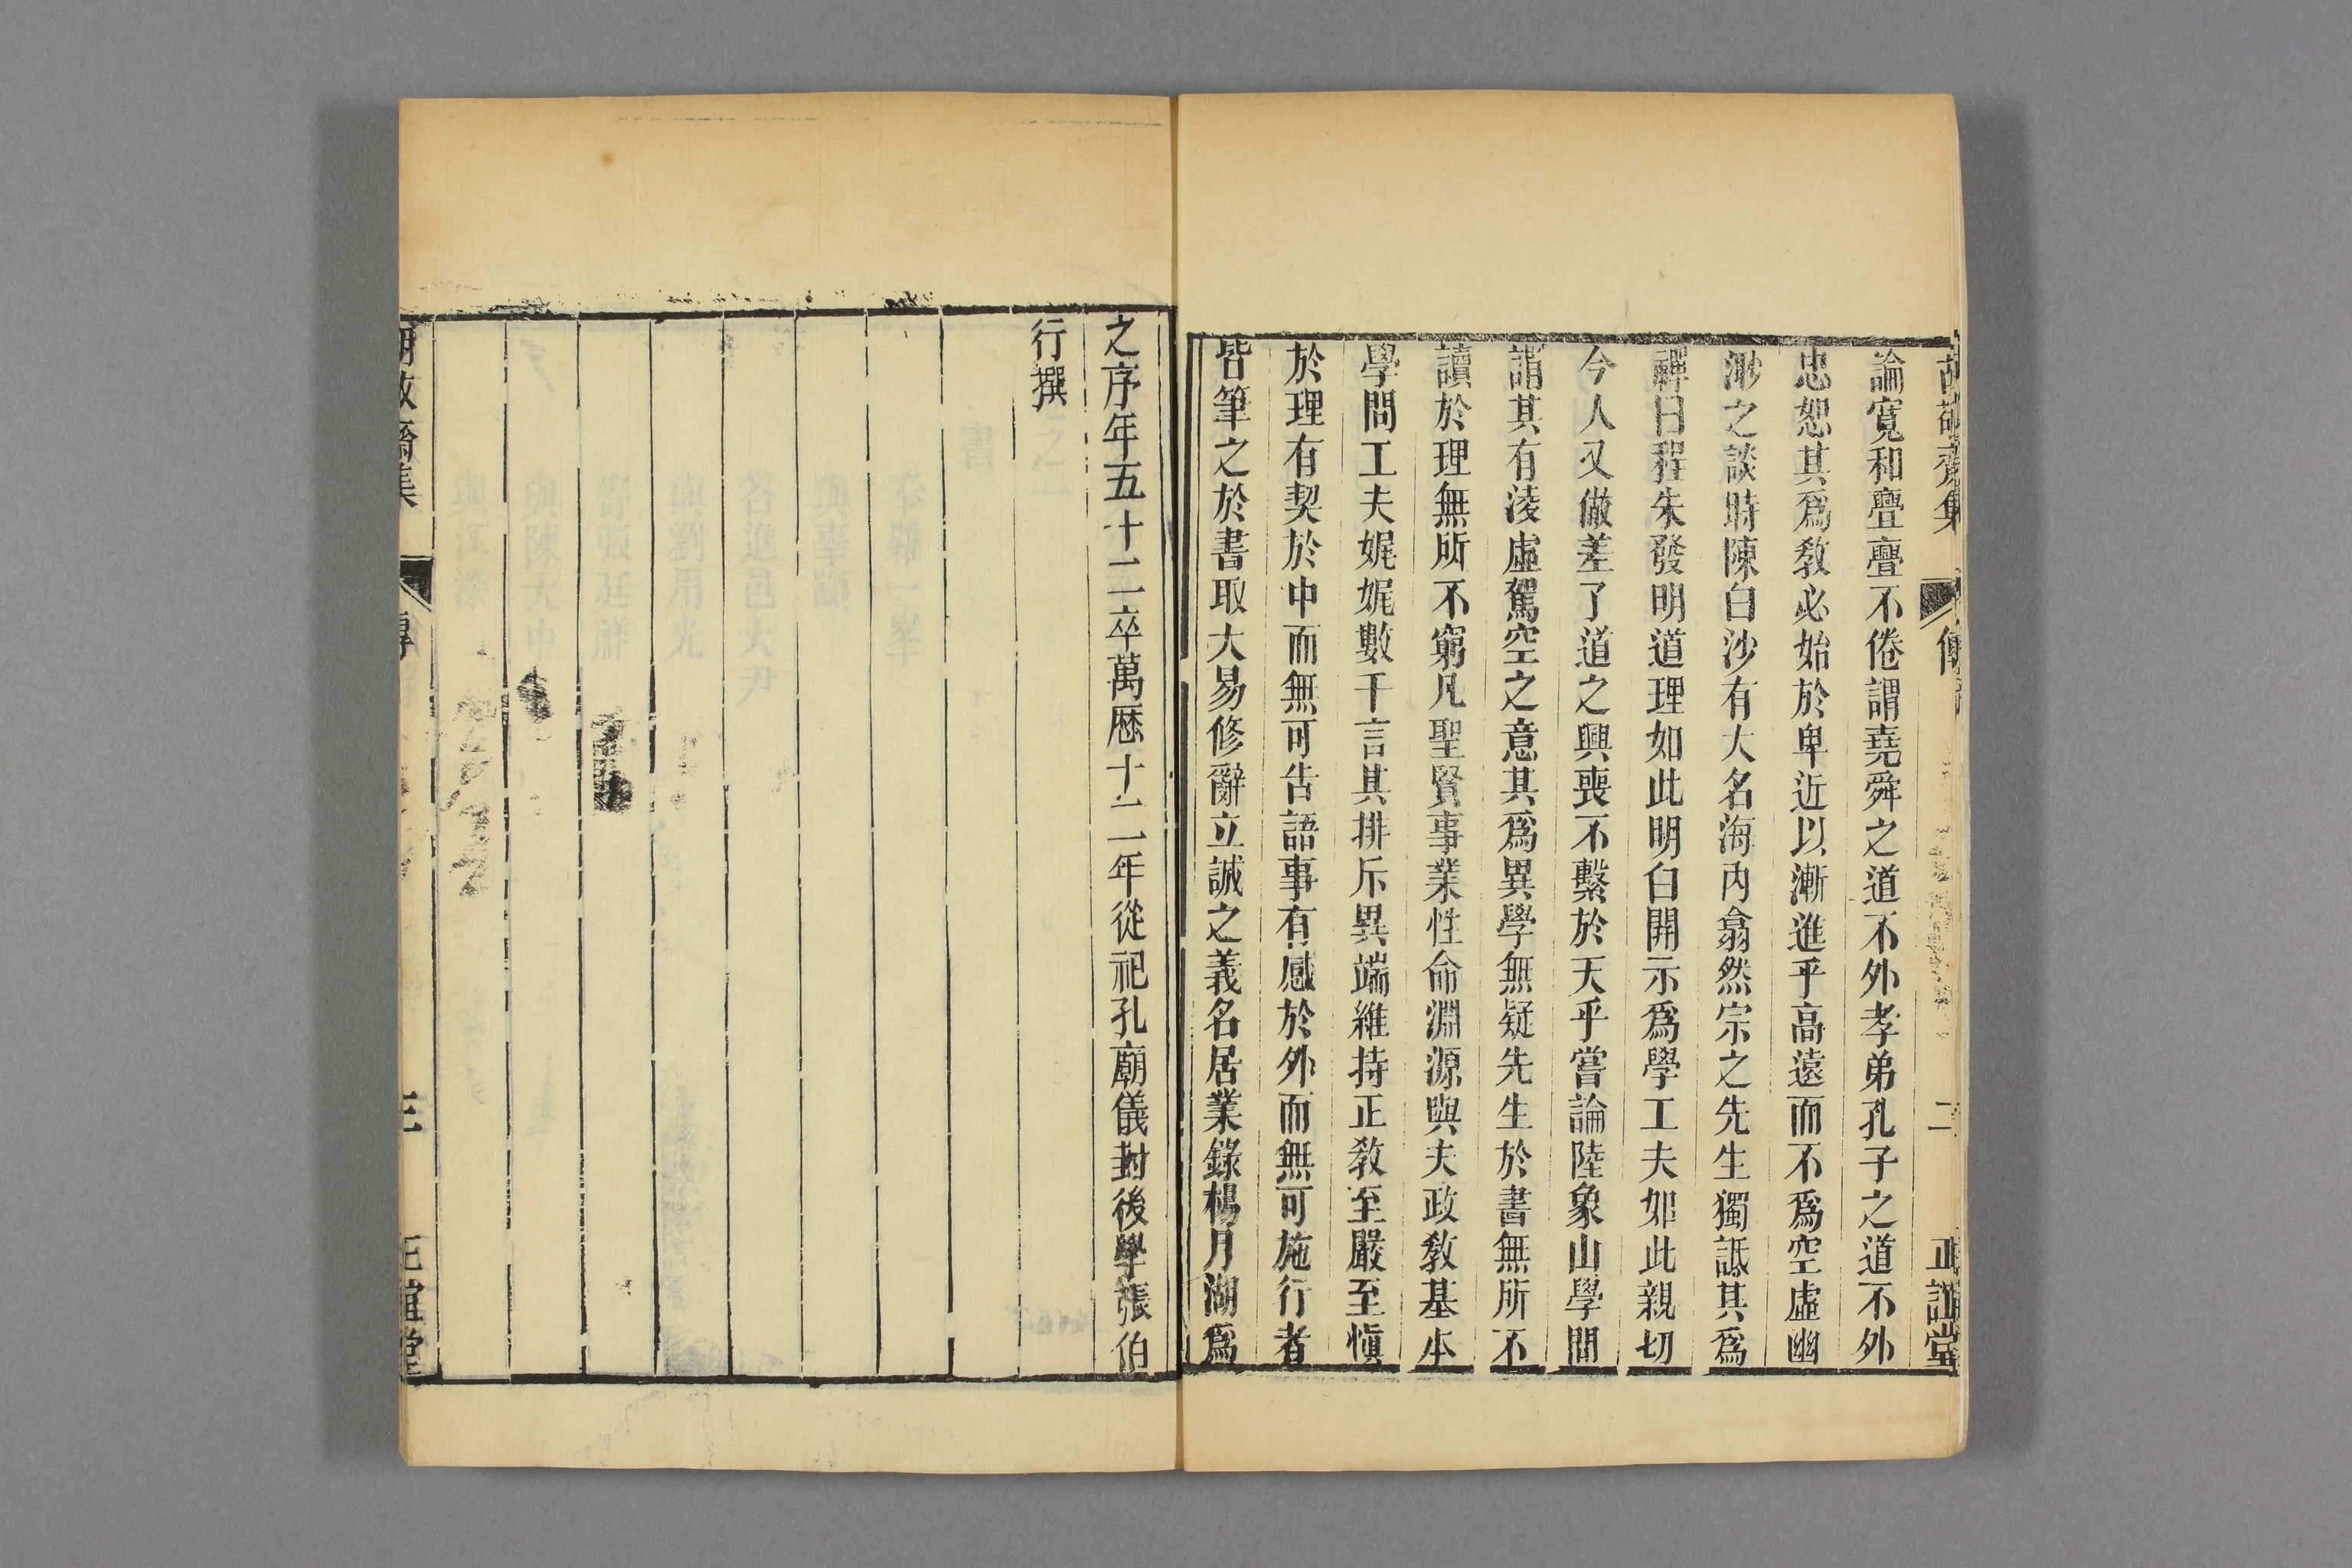 胡敬齋集 傳 二 正誼堂
論寬和亹亹不倦謂堯舜之道不外孝弟孔子之道不外
忠恕其爲敎必始於卑近以漸進乎高遠而不爲空虛幽
渺之談時陳白沙有大名海內翕然宗之先生獨詆其爲
禪曰程朱發明道理如此明白開示爲學工夫如此親切
今人又做差了道之興喪不繫於天乎嘗論陸象山學問
謂其有淩虛駕空之意其爲異學無疑先生於書無所不
讀於理無所不窮凡聖賢事業性命淵源與夫政敎基本
學問工夫娓娓數千言其排斥異端維持正敎至嚴至愼
於理有契於中而無可告語事有感於外而無可施行者
皆筆之於書取大易修辭立誠之義名居業錄楊月湖爲
之序年五十二卒萬歷十二年從祀孔廟儀封後學張伯
行撰
胡敬齋集 傳 三 正誼堂